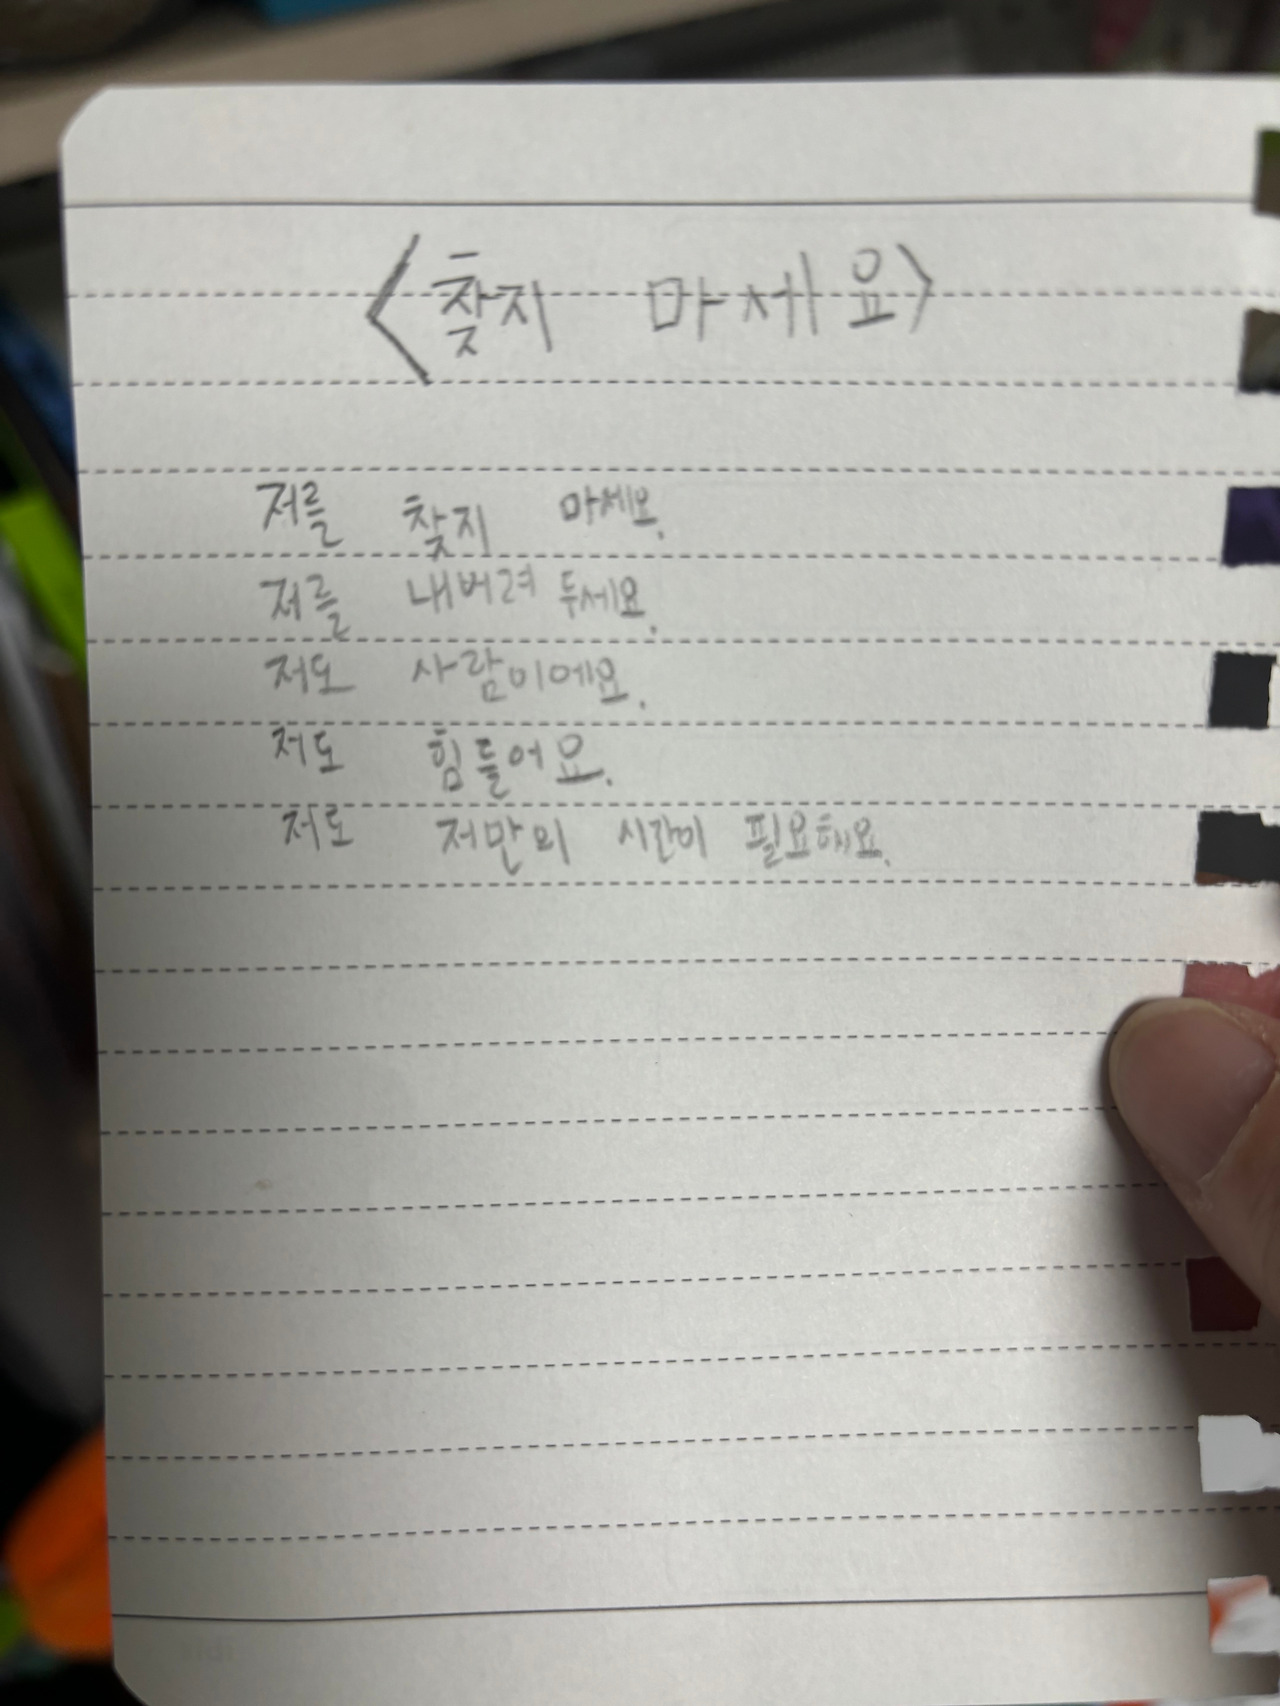 <찾지 마세요>
저를 찾지 마세요.
저를 내버려 두세요.
저도 사람이에요.
저도 힘들어요.
저도 저만의 시간이 필요해요.